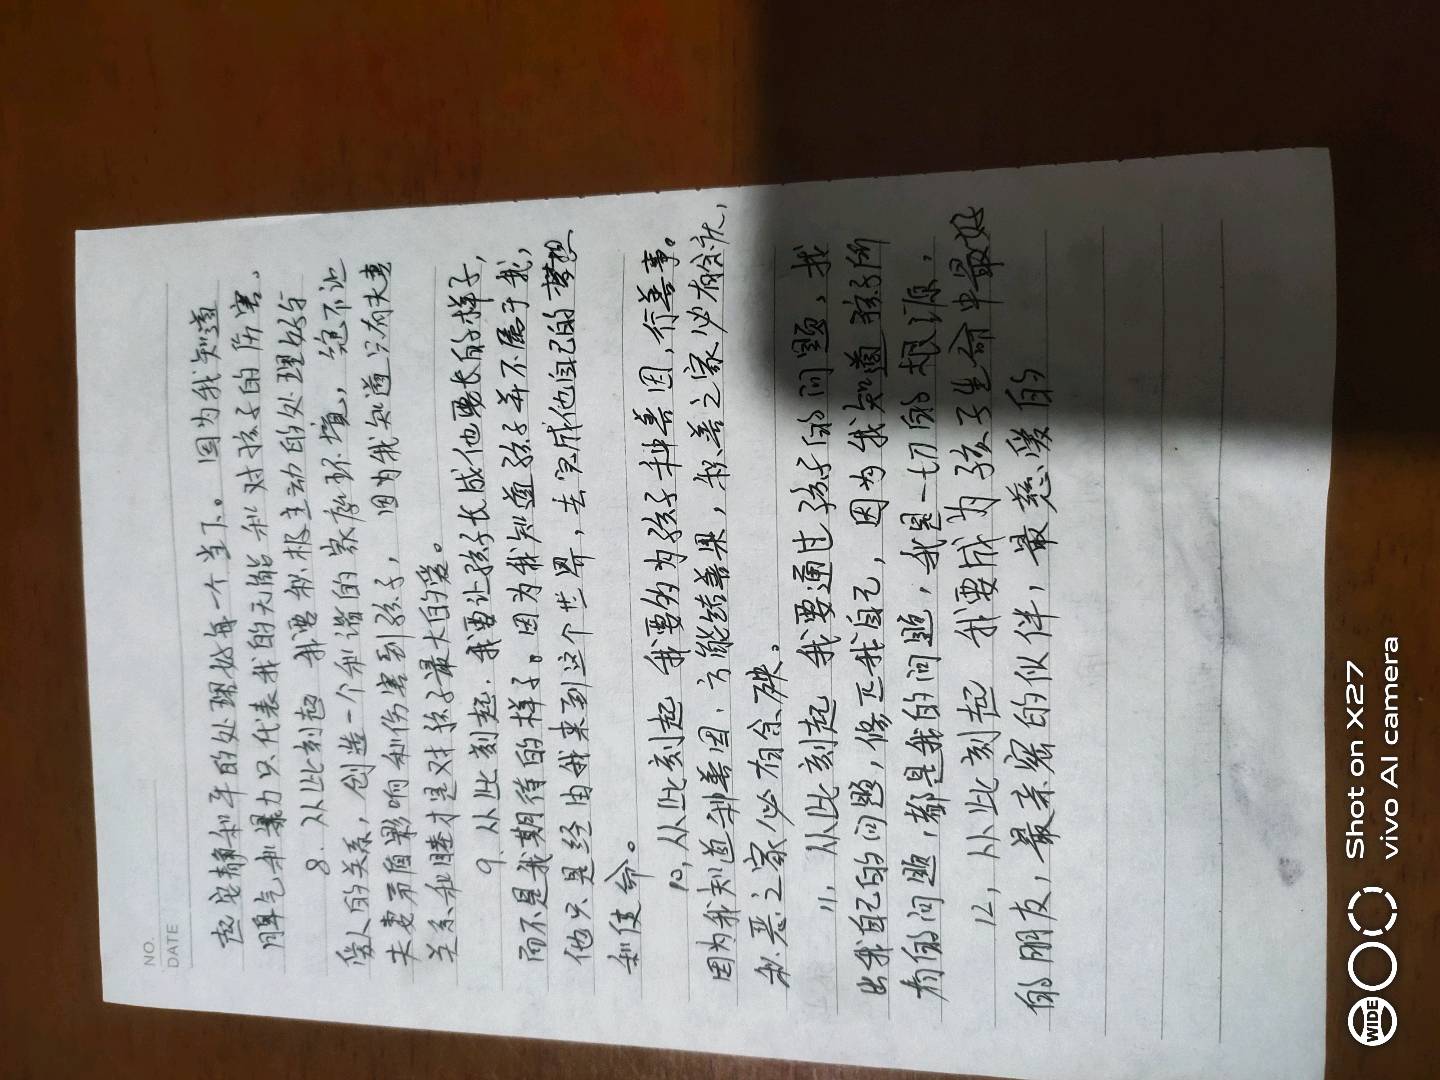 NO.
DATE
要安静和平的处理好每一个当下。因为我知道
脾气和暴力只代表我的无能和对孩子的伤害。
8. 从此刻起 我要积极主动的处理好与
爱人的关系,创造一个和谐的家庭环境,绝不让
夫妻矛盾影响和伤害到孩子, 因为我知道只有夫妻
关系和睦才是对孩子最大的爱。
9. 从此刻起. 我要让孩子长成他要长的样子,
而不是我期待的样子。因为我知道孩子并不属于我,
他只是经由我来到这个世界,去完成他自己的梦想
和使命。
10, 从此刻起 我要多为孩子种善因,行善事。
因为我知道种善因.方能结善果,积善之家必有余庆,
积恶之家必有余殃。
11. 从此刻起 我要通过孩子的问题,找
出我自己的问题,修正我自己, 因为我知道孩子所
有的问题,都是我的问题,我是一切的根源.
12, 从此刻起 我要成为孩子生命中最好
的朋友,最亲密的伙伴,最慈爱的
WIDE
Shot on X27
vivo AI camera